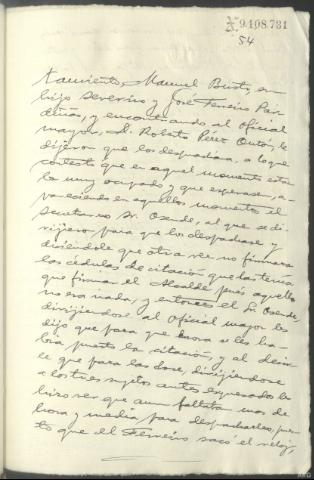 9.198.731
54
tamiento, Manuel Busto, su
hijo Severino y José Ferreiro Par
diñas, y encontrando al Oficial
mayor, D. Roberto Pérez Outón, le
dijeron que los despachara, a lo que
contestó que en aquel momento esta
ba muy ocupado y que esperasen, a-
pareciendo en aquellos momentos el
Secretario Sr. Osende, al que se di-
rijieron para que los despachase y
diciéndole que otra vez no firmara
las cédulas de citación que las tenía
que firmar el Alcalde pués aquello
no era nada, y entonces el Sr. Osende,
dirijiéndose al Oficial mayor les
dijo que para que hora se les ha-
bía puesto la citación, y al decir
le que para las doce, dirijiéndose
a los tres sujetos antes expresados le
hizo ver que aun faltaba mas de
hora y media para despacharlos, pues
to que el Ferreiro sacó el reloj,